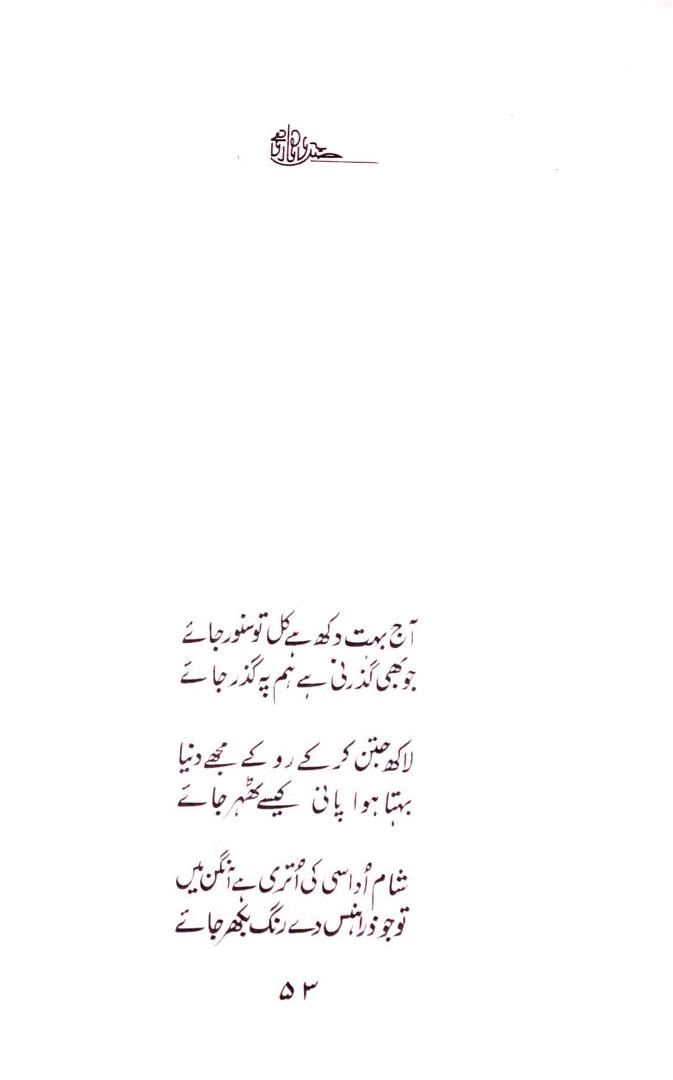 آج بہت دکھ ہے کل تو سنور جائے
جو بھی گذرنی ہے ہم پہ گذر جائے
لاکھ جتن کر کے روکے مجھے دنیا
بہتا ہوا پانی کیسے ٹھہر جائے
شام اُداسی کی اُتری ہے آنگن میں
تو جو ذرا ہنس دے رنگ بکھر جائے
۵۳